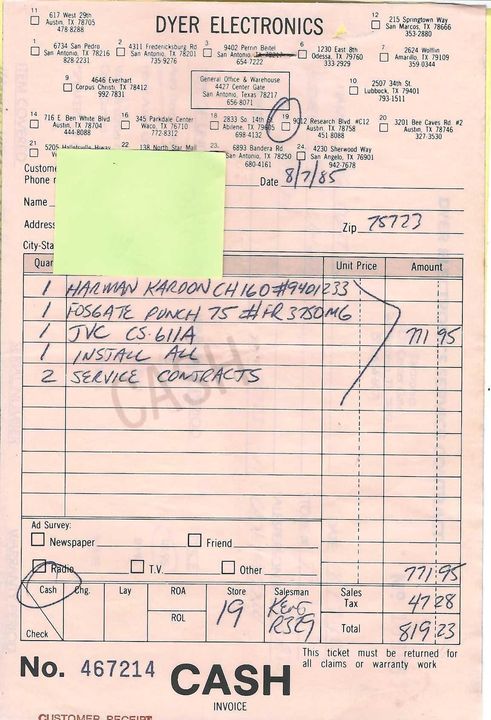 DYER ELECTRONICS
11 617 West 29th Austin, TX 78705 478 8288
12 215 Springtown Way San Marcos, TX 78666 353-2880
1 6734 San Pedro San Antonio, TX 78216 828 2231
2 4311 Fredericksburg Rd San Antonio, TX 78201 735 9276
3 9402 Perrin Beitel San Antonio, Tx 654 7222
6 1230 East 8th Odessa, TX 79760 333-2929
7 2624 Wolflin Amarillo, TX 79109 359 0344
9 4646 Everhart Corpus Christi, TX 78412 992 7831
General Office & Warehouse
4427 Center Gate
San Antonio, Texas 78217
656 8071
10 2507 34th St Lubbock, TX 79401 793-1511
14 716 E Ben White Blvd Austin, TX 78704 444-8088
16 345 Parkdale Center Waco, TX 76710 772-8312
18 2833 So. 14th St Abilene, TX 79605 698 4132
19 9012 Research Blvd #C12 Austin, TX 78758 451 8088
20 3201 Bee Caves Rd #2 Austin, TX 78746 327-3530
21 5205
22 138 North Star Mall
23 6893 Bandera Rd San Antonio, TX 78250 680-4161
24 4230 Sherwood Way San Angelo, TX 76901 942-7678
Custome
Phone
Date 8/7/85
Name
Address
Zip 75723
City-Sta
Quan Unit Price Amount
1 HARMAN KARDON CH160 #9401233
1 FOSGATE PUNCH 75 #FR3750MG
1 JVC CS-611A 771 95
1 INSTALL ALL
2 SERVICE CONTRACTS
CASH
Ad Survey:
Newspaper Friend
Radio T.V. Other 771 95
Cash Chg. Lay ROA Store Salesman Sales Tax 47 28
Check ROL 19 R329 Total 819 23
This ticket must be returned for
all claims or warranty work
No. 467214 CASH
INVOICE
CUSTOMER RECEIPT